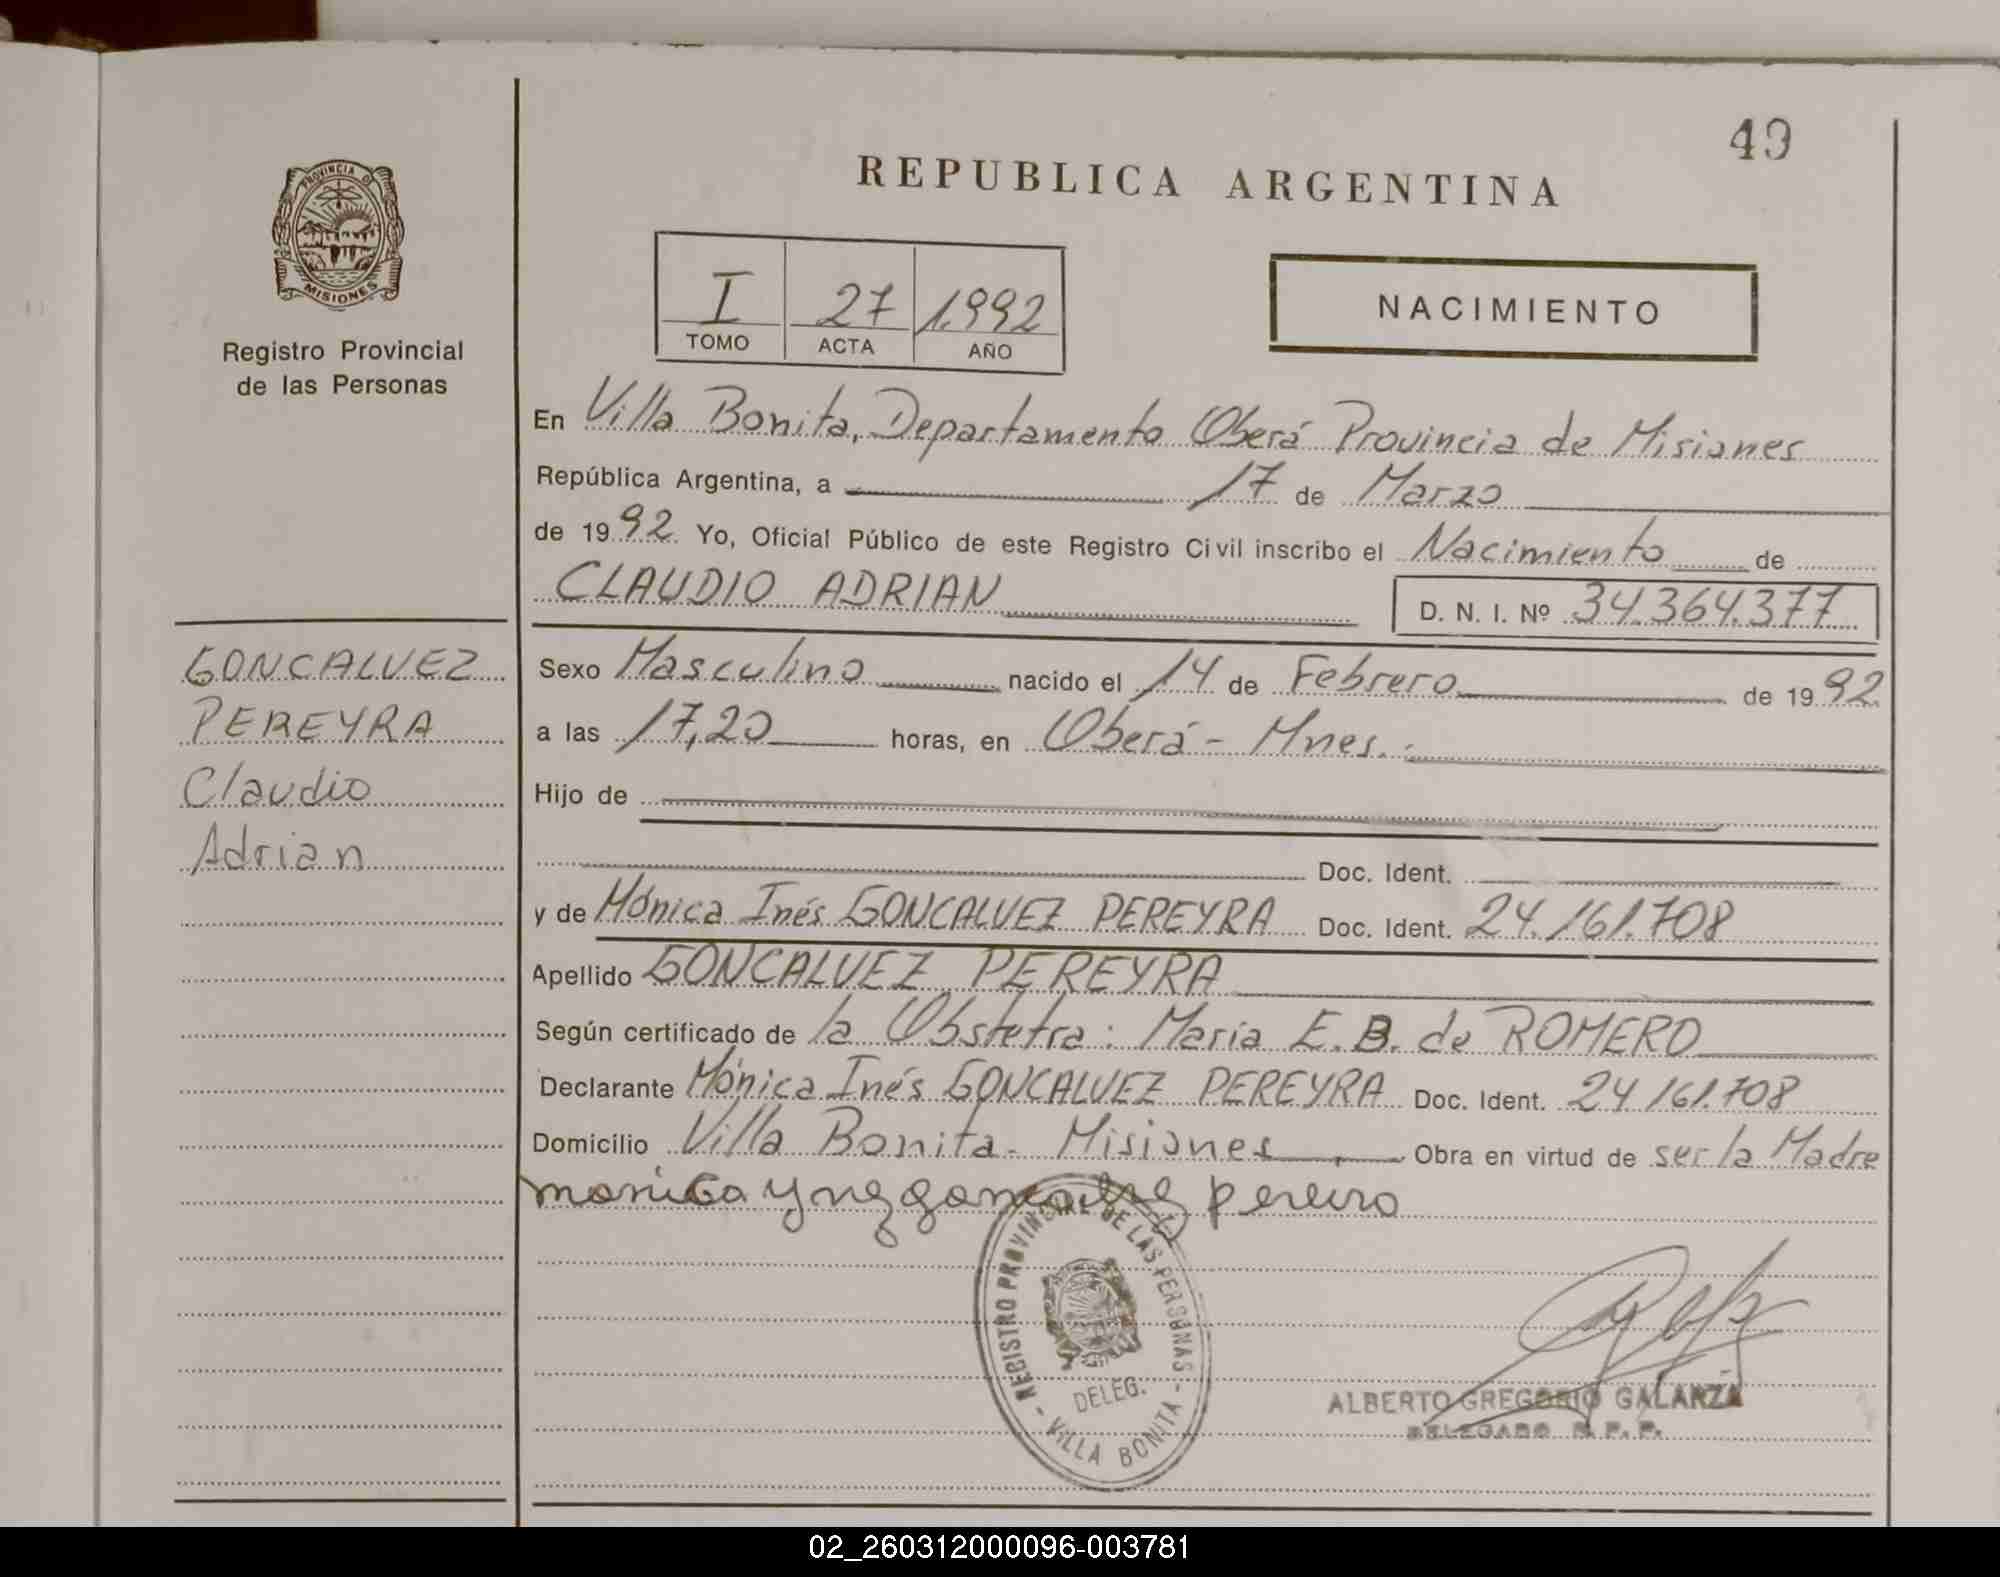 49
REPUBLICA ARGENTINA
PROVINCIA D
MISIONES
Registro Provincial
de las Personas
I 27 1.992
TOMO ACTA AÑO
NACIMIENTO
En Villa Bonita, Departamento Oberá Provincia de Misiones
República Argentina, a 17 de Marzo
de 1992 Yo, Oficial Público de este Registro Civil inscribo el Nacimiento de
CLAUDIO ADRIAN D. N. I. Nº 34.364.377
GONCALVEZ
PEREYRA
Claudio
Adrian
Sexo Masculino nacido el 14 de Febrero de 1992
a las 17,20 horas, en Oberá - Mnes.
Hijo de
Doc. Ident.
y de Mónica Inés GONCALVEZ PEREYRA Doc. Ident. 24.161.708
Apellido GONCALVEZ PEREYRA
Según certificado de la Obstetra: María E. B. de ROMERO
Declarante Mónica Inés GONCALVEZ PEREYRA Doc. Ident. 24.161.708
Domicilio Villa Bonita - Misiones Obra en virtud de ser la Madre
REGISTRO PROVINCIAL DE LAS PERSONAS
DELEG.
- VILLA BONITA -
ALBERTO GREGORIO GALARZA
DELEGADO R. P. P.
02_260312000096-003781